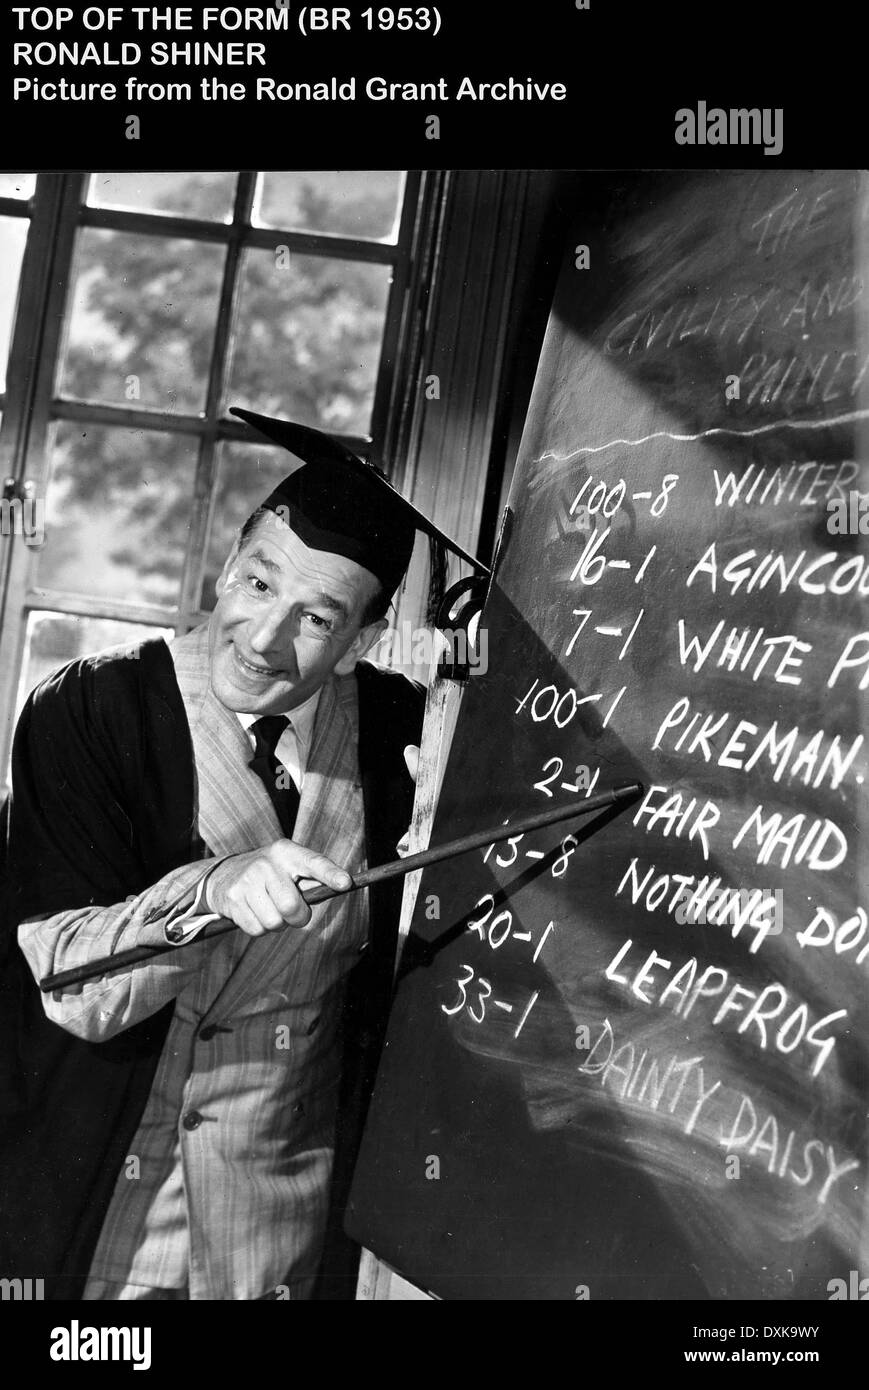 TOP OF THE FORM (BR 1953)
RONALD SHINER
Picture from the Ronald Grant Archive
alamy
THE
CIVILITY AND
100-8 WINTER
16-1 AGINCOU
7-1 WHITE P
100-1 PIKEMAN.
2-1 FAIR MAID
13-8 NOTHING DOI
20-1 LEAPFROG
33-1 DAINTY DAISY
alamy
Image ID: DXK9WY
www.alamy.com